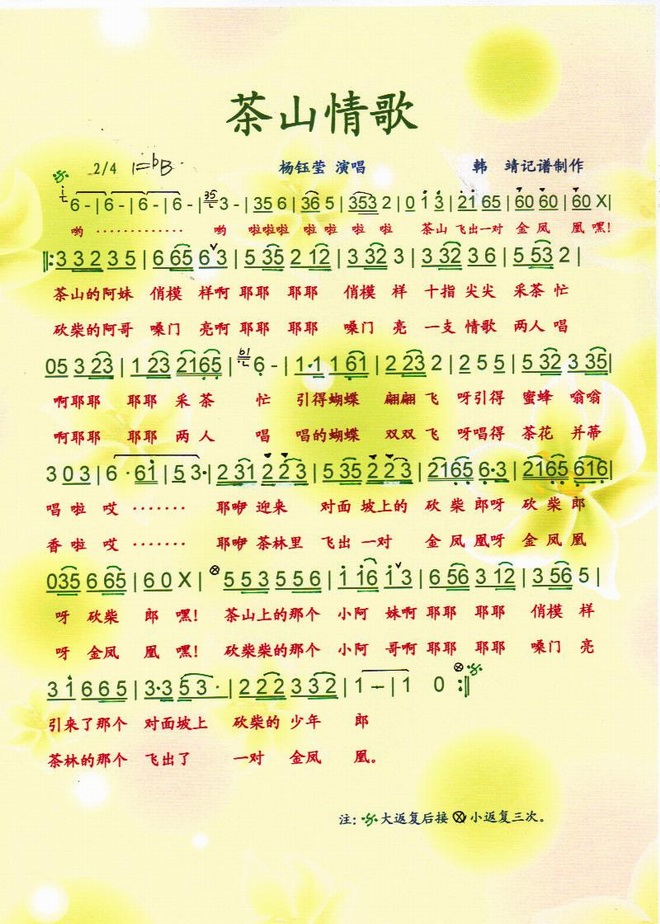 茶山情歌
2/4 1=bB 杨钰莹 演唱 韩 靖记谱制作
6 - | 6 - | 6 - | 6 - | 3 - | 35 6 | 36 5 | 353 2 | 0 1 3 | 21 65 | 60 60 | 60 X |
哟 ············ 哟 啦啦啦 啦啦 啦 啦 啦 茶山 飞出一对 金 凤 凰 嘿!
‖: 3 3 2 3 5 | 6 65 6 3 | 5 35 2 12 | 3 32 3 | 3 32 3 6 | 5 53 2 |
茶山的阿妹 俏模 样啊 耶耶 耶耶 俏模 样 十指 尖尖 采茶 忙
砍柴的阿哥 嗓门 亮啊 耶耶 耶耶 嗓门 亮 一支 情歌 两人 唱
05 3 23 | 1 23 2165 | 6 - | 1·1 1 61 | 2 23 2 | 2 5 5 | 5 32 3 35 |
啊耶耶 耶耶 采 茶 忙 引得蝴蝶 翩翩 飞 呀引得 蜜蜂 嗡嗡
啊耶耶 耶耶 两 人 唱 唱的蝴蝶 双双 飞 呀唱得 茶花 并蒂
3 0 3 | 6 · 61 | 5 3· | 2 31 2 23 | 5 35 2 23 | 2165 6·3 | 2165 616 |
唱 啦 哎 ······· 耶咿 迎来 对面 坡上的 砍 柴 郎呀 砍 柴 郎
香 啦 哎 ······· 耶咿 茶林里 飞出 一对 金 凤 凰呀 金 凤 凰
035 6 65 | 6 0 X | ⊗ 5 5 3 5 5 6 | 1 16 1 3 | 6 56 3 12 | 3 56 5 |
呀 砍柴 郎 嘿! 茶山上的那个 小阿 妹啊 耶耶 耶耶 俏模 样
呀 金凤 凰 嘿! 砍柴柴的那个 小阿 哥啊 耶耶 耶耶 嗓门 亮
3 1 6 6 5 | 3·3 5 3 · | 2 2 2 3 3 2 | 1 - | 1 0 :‖
引来了那个 对面坡上 砍柴的 少年 郎
茶林的那个 飞出了 一对 金凤 凰。
注: 𝄋 大返复后接 ⊗ 小返复三次。